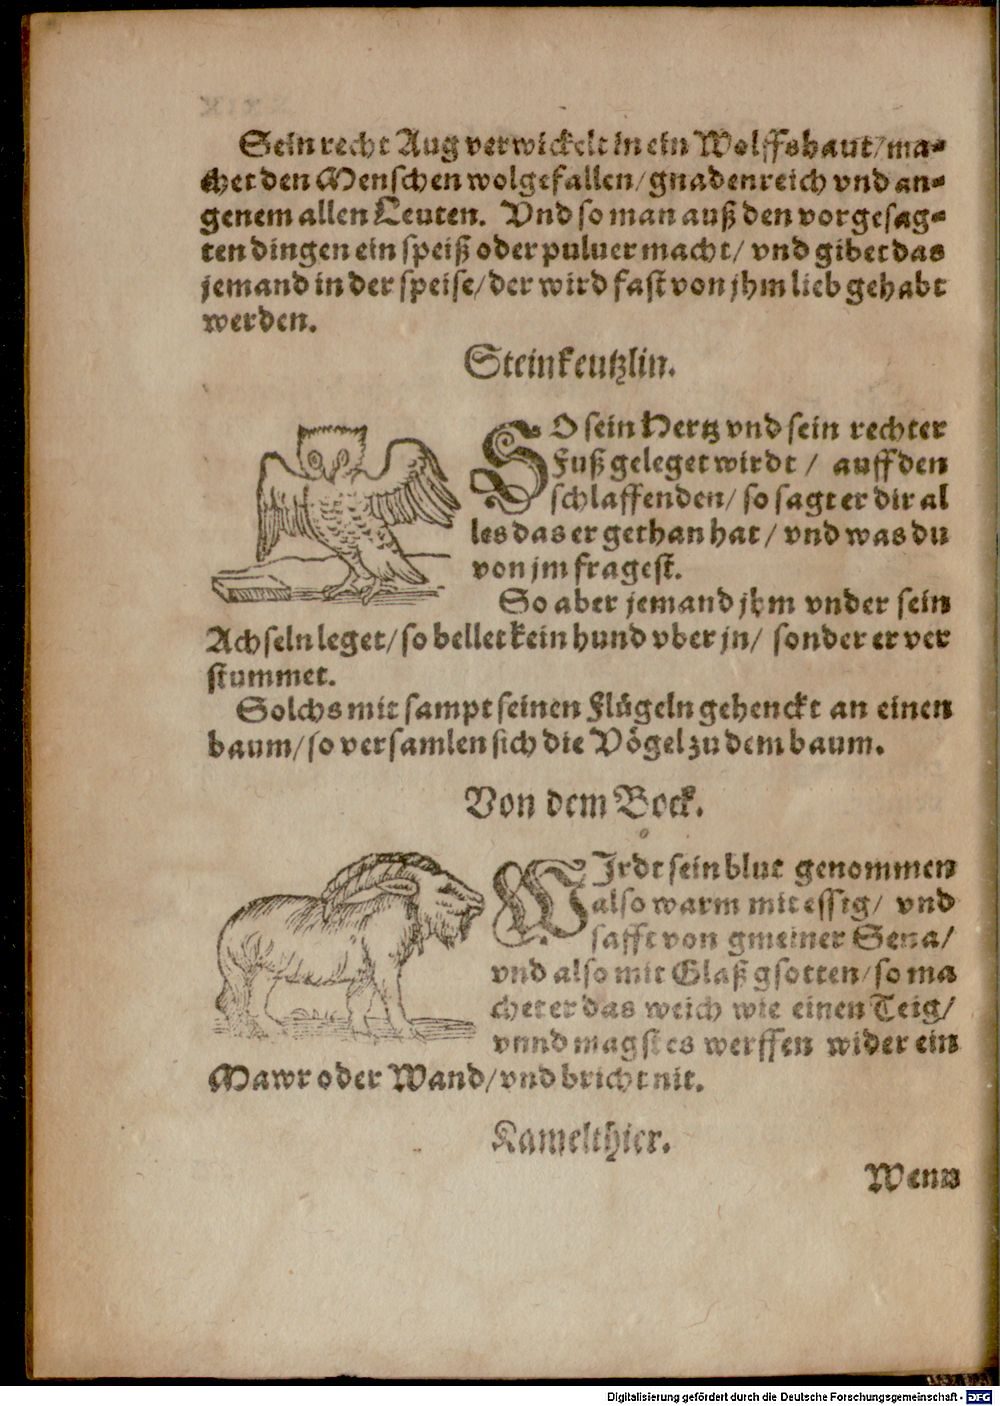 Sein recht Aug verwickelt in ein Wolffshaut/ ma⸗
chet den Menschen wolgefallen/ gnadenreich vnd an⸗
genem allen Leuten. Vnd so man auß den vorgesag⸗
ten dingen ein speiß oder puluer macht/ vnd gibet das
jemand in der speise/ der wird fast von jhm lieb gehabt
werden.
Steinkeutzlin.
SO sein Hertz vnd sein rechter
Fuß geleget wirdt / auff den
schlaffenden/ so sagt er dir al
les das er gethan hat / vnd was du
von jm fragest.
So aber jemand jhm vnder sein
Achseln leget/ so bellet kein hund vber jn/ sonder er ver
stummet.
Solchs mit sampt seinen Flügeln gehenckt an einen
baum/ so versamlen sich die Vögel zu dem baum.
Von dem Bock.
WJrdt sein blut genommen
also warm mit essig/ vnd
safft von gmeiner Sena/
vnd also mit Glaß gsotten/ so ma
chet er das weich wie einen Teig/
vnnd magst es werffen wider ein
Mawr oder Wand/ vnd bricht nit.
Kamelthier.
Wenn
Digitalisierung gefördert durch die Deutsche Forschungsgemeinschaft - DFG